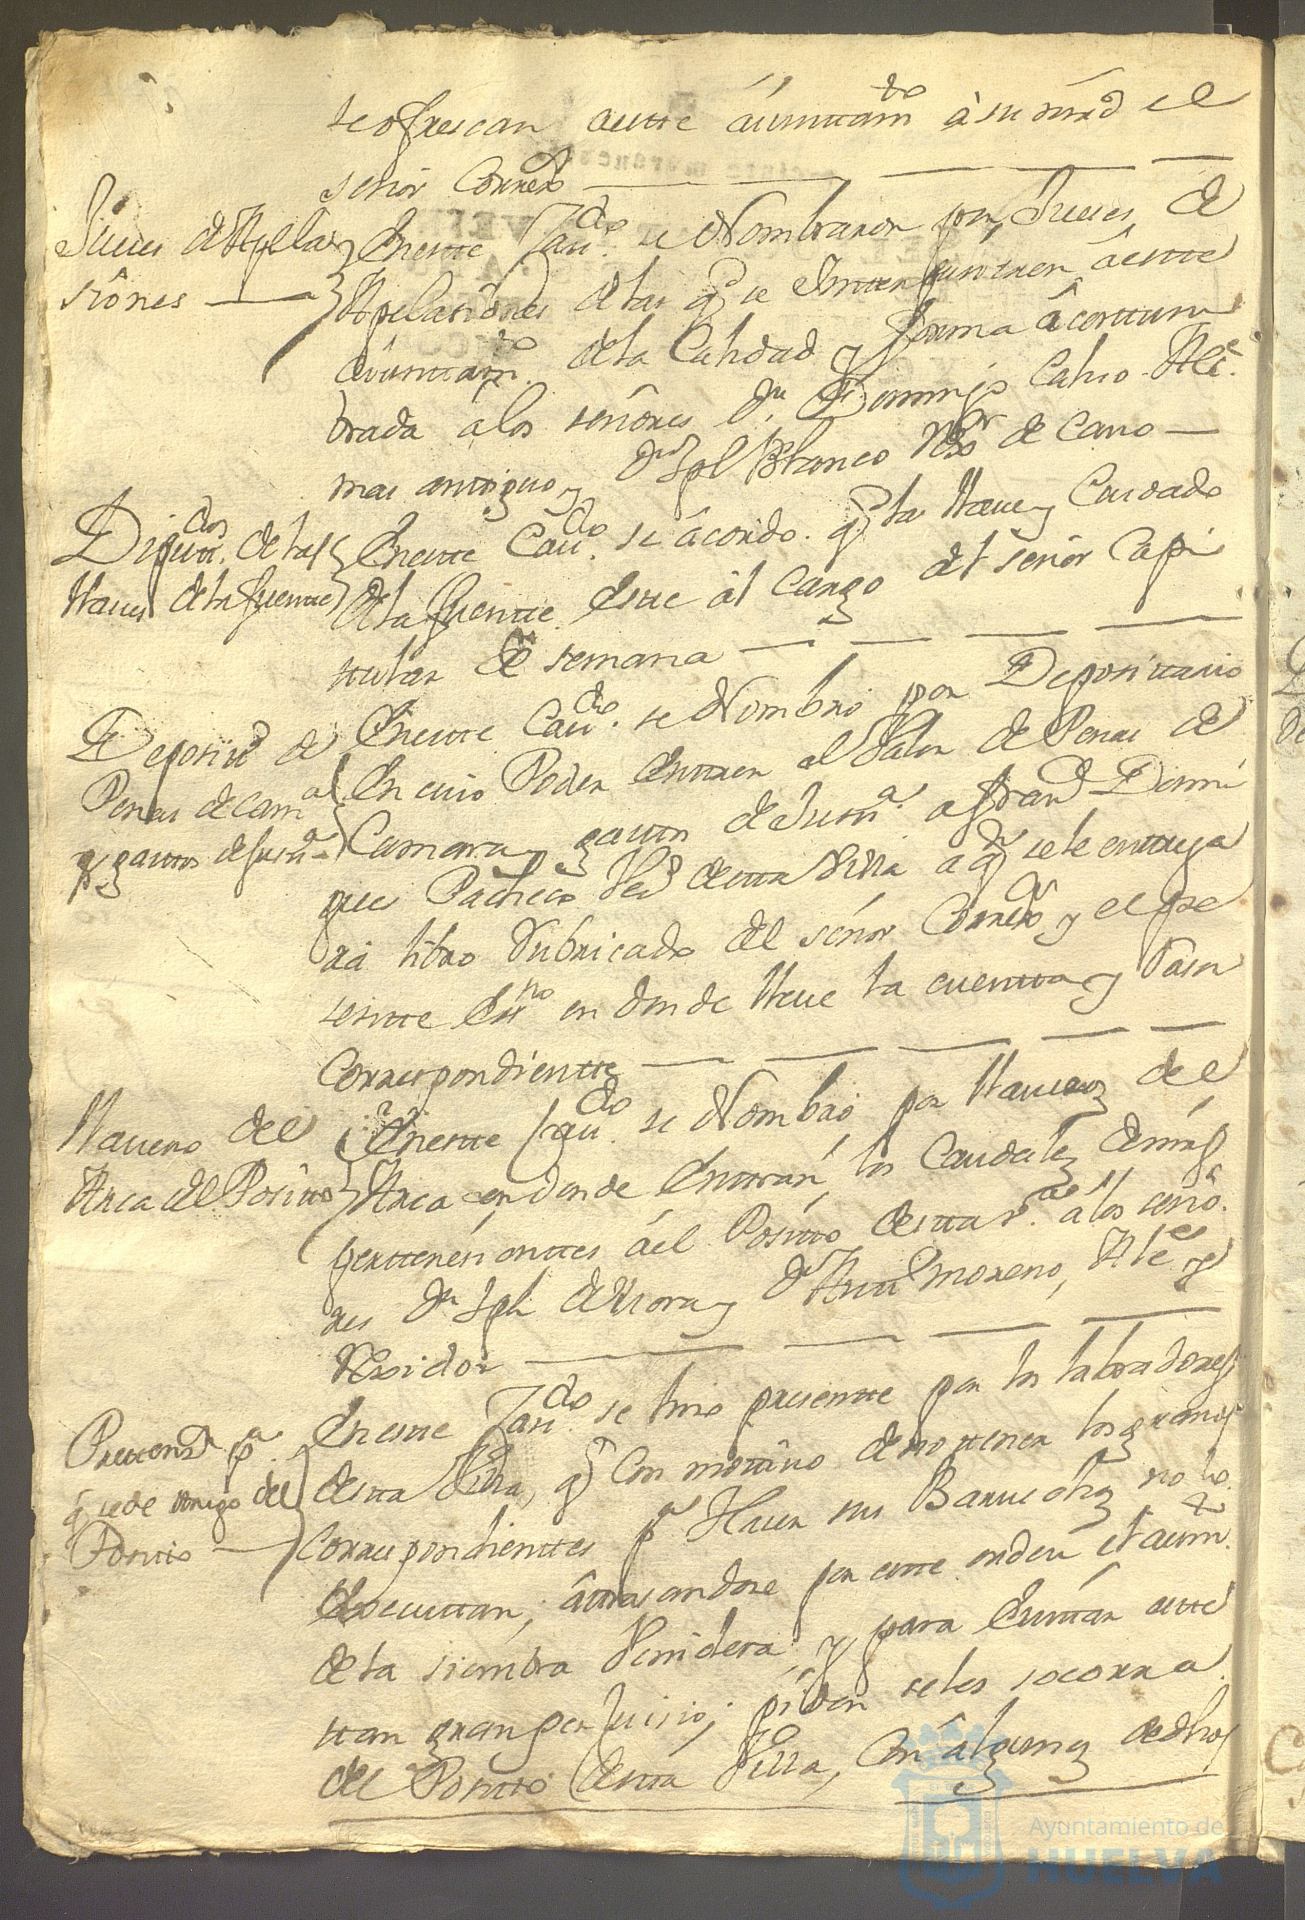 se ofrescan a este aiuntamto à su mrd el
señor Correxor
Jueses de Apella
siones
En este Cavdo. se Nombraron por Jueses de
Apelasiones de las qe se Interpusieren à este
Aiuntamto. de la Calidad y forma àcostum
brada â los señores Dn. Domingo Calvo Alce.
mas antiguo y Dn Jph Blanco Rexor de Cano
Diputdos. de las
llaves de la fuente
En este Cavdo. se àcordo. qe la llave y Cuidado
de la fuente este àl Cargo del señor Capi
tular de semana
Depositto de
Penas de Cama
y gastos de Justa
En este Cavdo. se Nombro por Deposittario
En cuio Poder entren el Valor de Penas de
Camara y gastos de Justa a Franco Domin
gues Pacheco Veo desta Villa a qn se le entrega
rà libro Rubricado del señor Correxor y el pre
sentte Essno en donde lleve la cuentta y Rason
Correspondientte
Llavero del
Arca del Positto
En este Cavdo se Nombro por llaveros del
Arca en donde Entraràn los Caudales
perttenesienttes àel Positto desta Va. à los seño
res Dn Jph de Mora y Dn Anto Moreno, Alce. y
Rexidor
Prettensn pa.
qe se de trigo del
Positto
En este Cavdo se hiso presentte por los labradores
desta Villa, qe Con mottivo de no tener los granos
Correspondienttes pa Haser sus Barvechos no lo
Executtan; àtrasandose por este orden el aumto.
de la siembra Venidera y para Evittar este
tan gran perjuisio; piden se les socorra
del Positto desta Villa, Con àlgunos de dhos
Ayuntamiento de
HUELVA